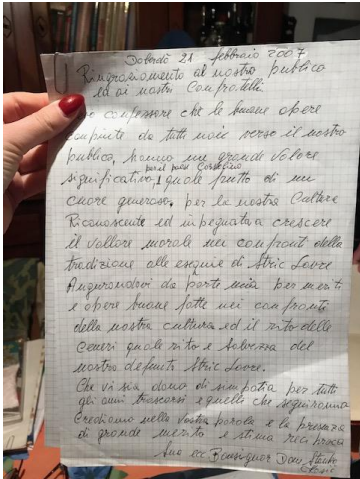 Doberdò 21 febbraio 2007
Ringraziamento al nostro publico
ed ai nostri Confratelli.
confessore che le buone opere
compiute da tutti noi verso il nostro
publico, hanno un grande valore
significativo, quale frutto di un
cuore generoso, per la nostra Cultura
Riconoscente ed impegnata a crescere
il vallore morale nei confronti della
tradizione alle esequie di Stric Lovre
Augurandovi da parte mia per meriti
e opere buone fatte nei confronti
della nostra cultura ed il rito delle
Ceneri quale rito e Salvezza del
nostro defunti Stric Lovre.
Che vi sia dono di simpatia per tutti
gli anni trascorsi e quelli che seguiranno
Crediamo nella Vostra parola e la presenza
di grande merito e stima reciproca